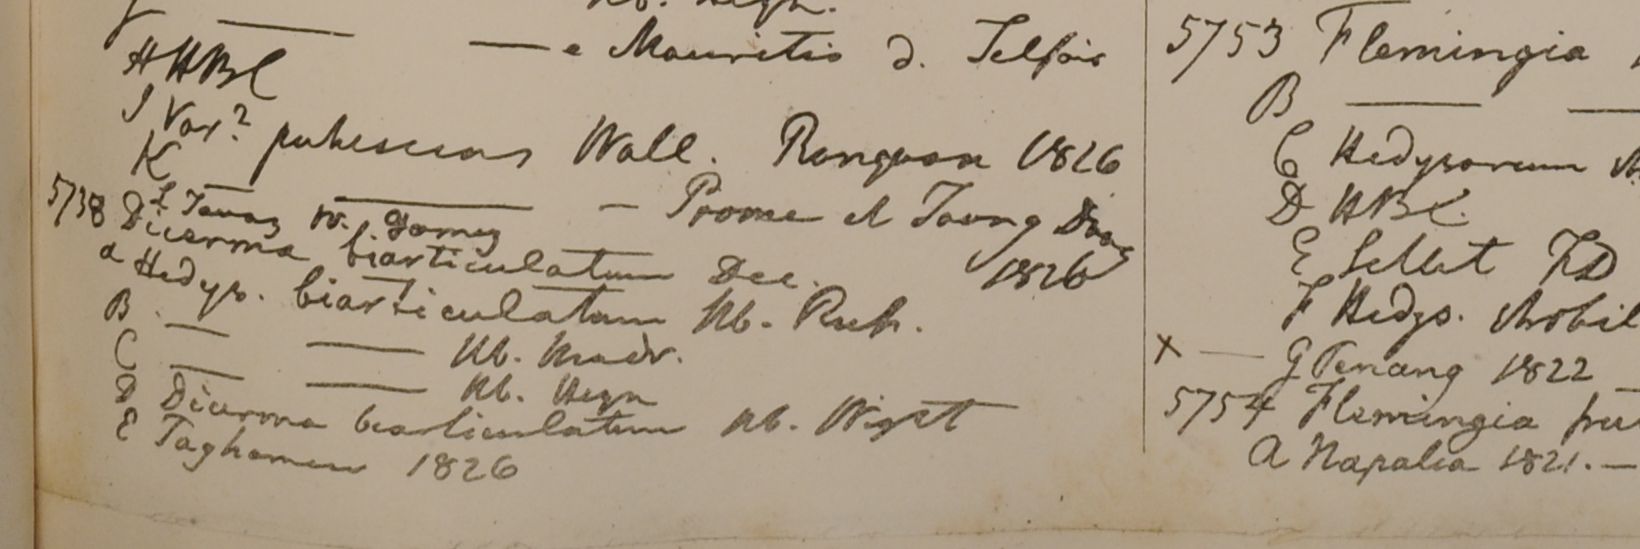 — — e Mauritio D. Telfair
H HBC
I Var? pubescens Wall. Rangoon 1826
K — — — Prome et Toung Dong 1826
L Tavoy W. Gomez
5738 Dicerma biarticulatum Dec.
a Hedys. biarticulatum Hb. Rus.
B — — Hb. Madr.
C — — Hb. Heyn
D Dicerma biarticulatum Hb. Wight
E Taghamew 1826
5753 Flemingia
B — —
C Hedysarum
D HBC.
E Sellet FD
F Hedys. strobil
x — G Penang 1822 —
5754 Flemingia
A Napalia 1821. —